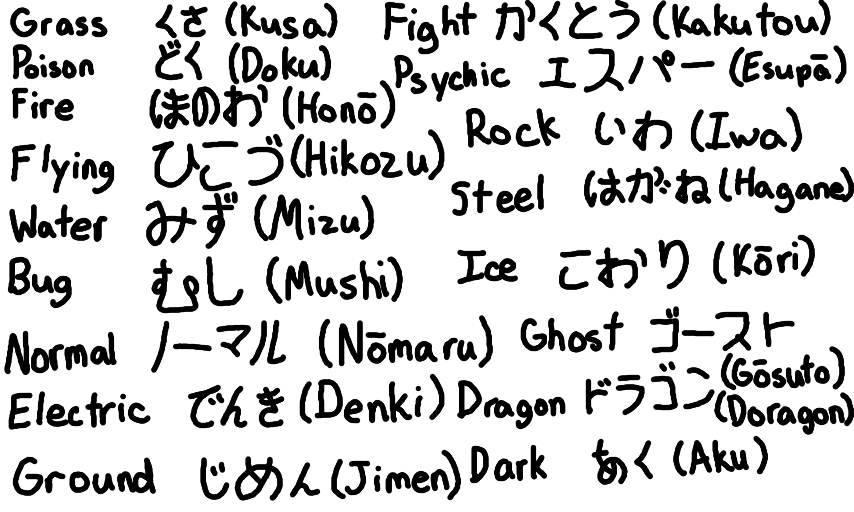 Grass くさ (Kusa)
Poison どく (Doku)
Fire ほのお (Honō)
Flying ひこづ (Hikozu)
Water みず (Mizu)
Bug むし (Mushi)
Normal ノーマル (Nōmaru)
Electric でんき (Denki)
Ground じめん (Jimen)
Fight かくとう (Kakutou)
Psychic エスパー (Esupā)
Rock いわ (Iwa)
Steel はがね (Hagane)
Ice こおり (Kōri)
Ghost ゴースト
(Gōsuto)
Dragon ドラゴン (Doragon)
Dark あく (Aku)